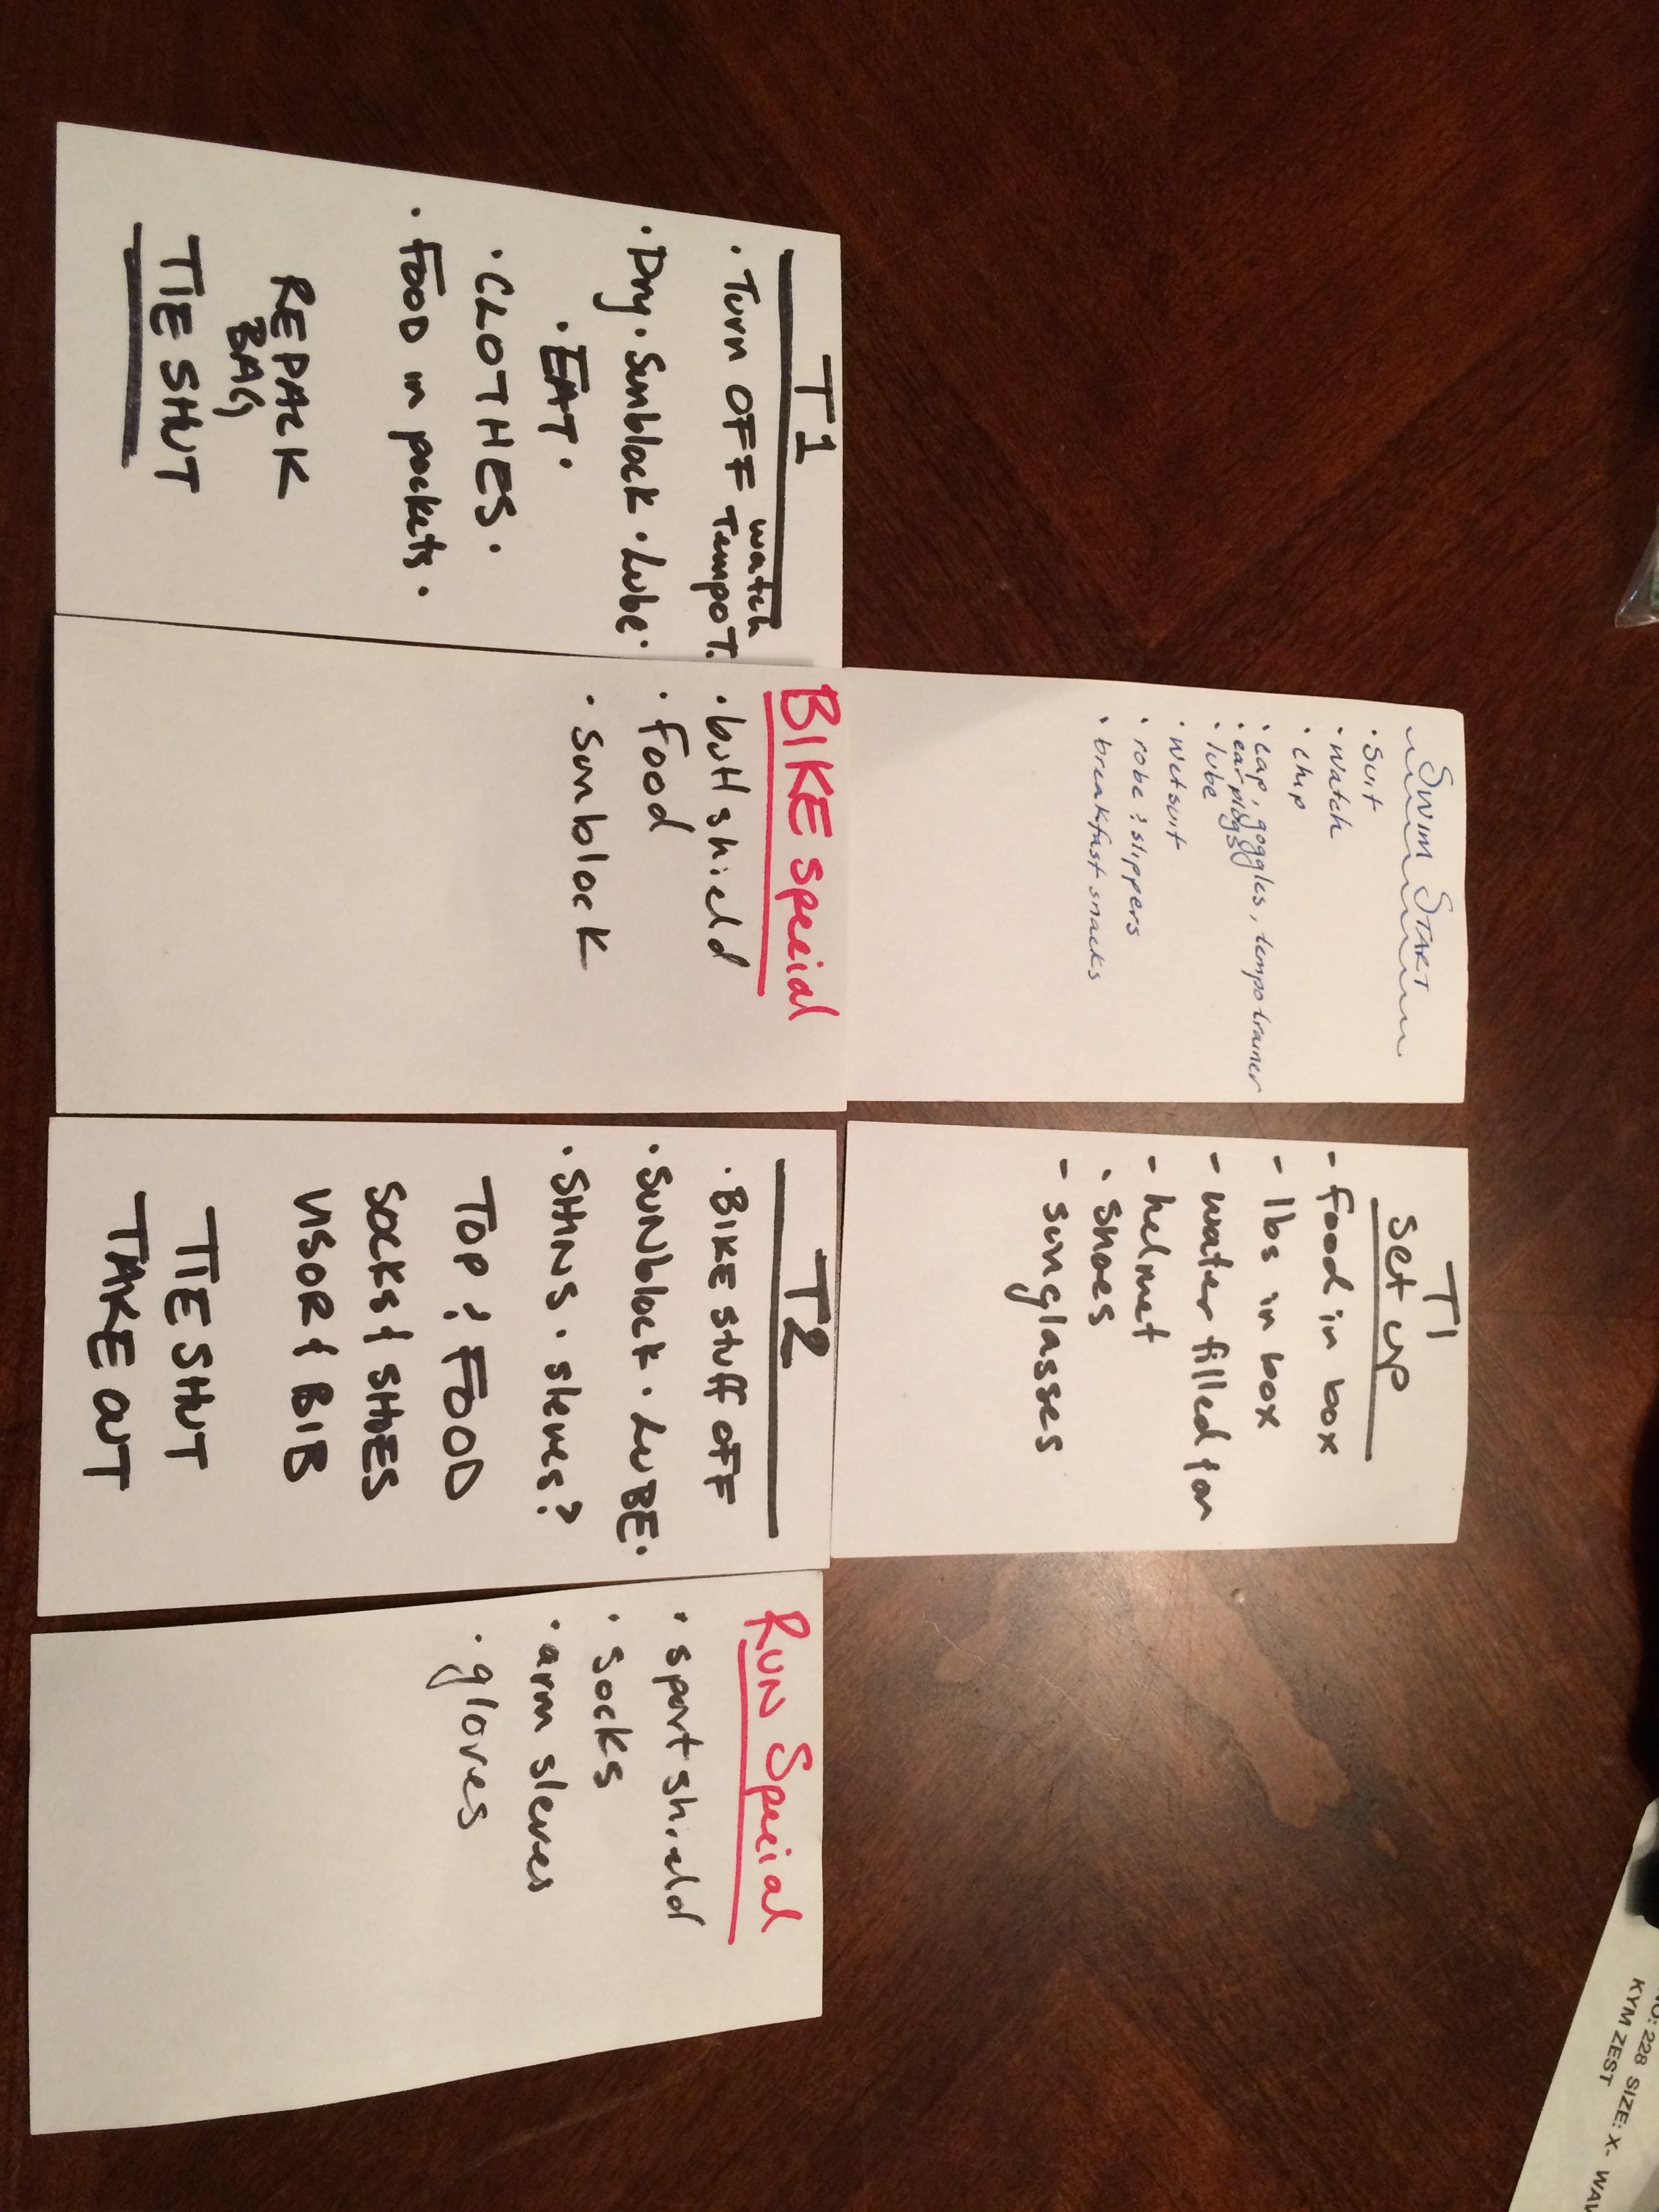 Swim START
• Suit
• watch
• chip
• cap, goggles, tempotrainer
• earplugs
• lube
• wetsuit
• robe & slippers
• breakfast snacks
T1
set up
- food in box
- lbs in box
- water filled for
- helmet
• shoes
- sunglasses
T1
watch
• Turn OFF TempoT.
• Dry • Sunblock • Lube •
• EAT •
• CLOTHES •
• FOOD in pockets •
REPACK
BAG
TIE SHUT
BIKE special
• butt shield
• food
• sunblock
T2
• BIKE stuff OFF
• SUNblock • LUBE •
• SHNS • sleves?
TOP & FOOD
SOCKS & SHOES
VISOR & BIB
TIE SHUT
TAKE OUT
RUN Special
• sport shield
• socks
• arm sleeves
• gloves
228 SIZE: X-
KYM ZEST